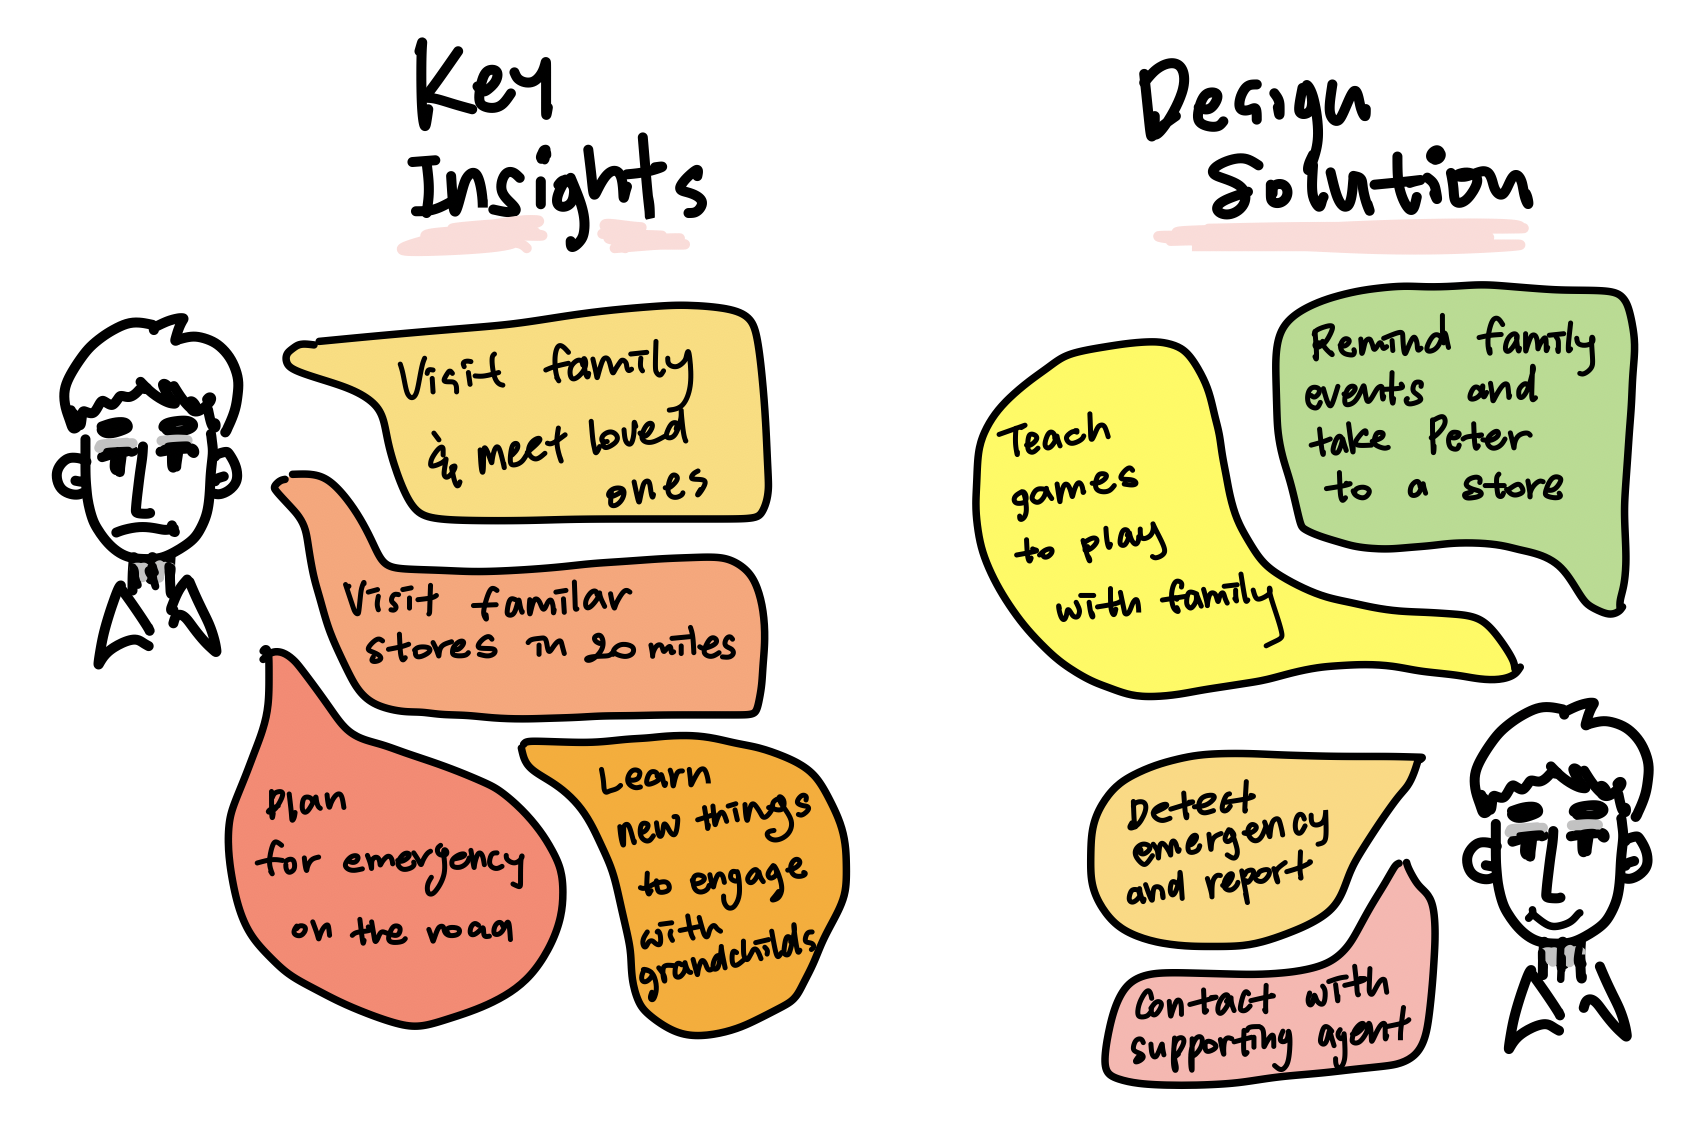 Key
Insights
Visit family
& meet loved
ones
Visit familar
stores in 20 miles
Plan
for emergency
on the road
Learn
new things
to engage
with
grandchilds
Design
Solution
Remind family
events and
take Peter
to a store
Teach
games
to play
with family
Detect
emergency
and report
Contact with
supporting agent